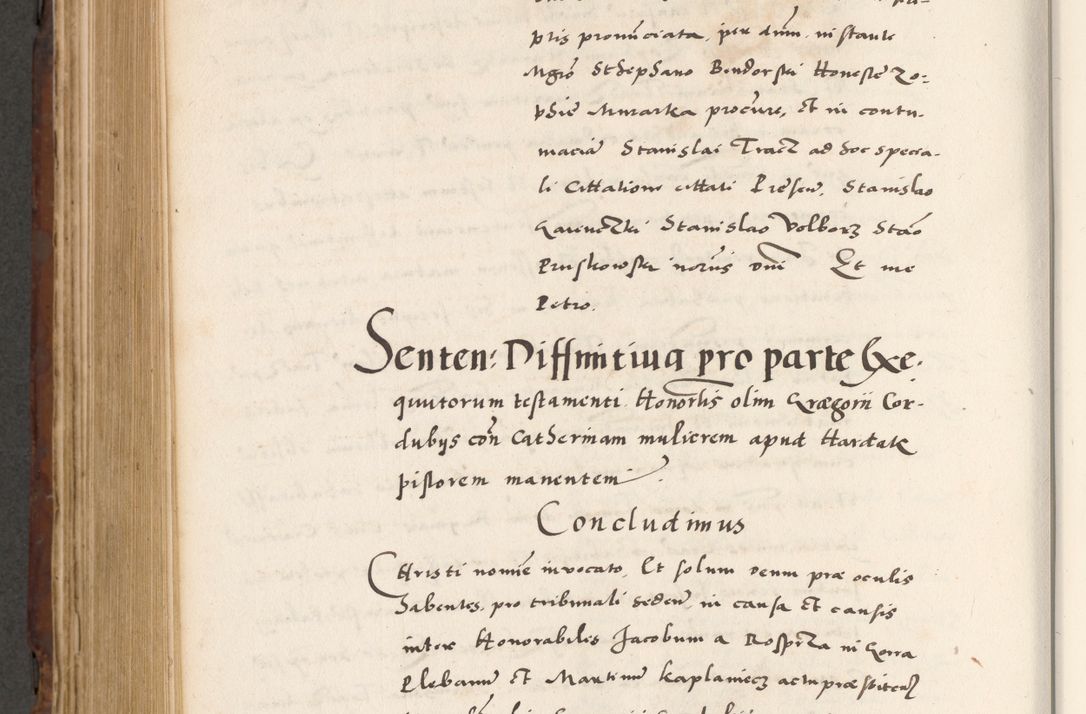 ptis pronunciata, per dnm. in stante
Mgro Stephano Bendorski Honeste Zo-
phie Murarka procure, et in contu-
macia Stanislai Tracz ad hoc specia-
li Cittatione cittati Presen. Stanislao
Stanislao Volborz Stao
Pruskowski noriis dni Et me
Petro.
Senten: Diffinitiua pro parte Exe-
quutorum testamenti Honorlis olim Græegorii Cor-
dubijs con Catherinam mulierem apud Hardak
pistorem manentem.
Concludimus
Christi nomie invocato, Et solum deum præ oculis
habentes, pro tribunali seden, in causa et causis
inter Honorabiles Jacobum a in Gorra
Plebanum et Martinum kaplaniecz actu præsbiteru